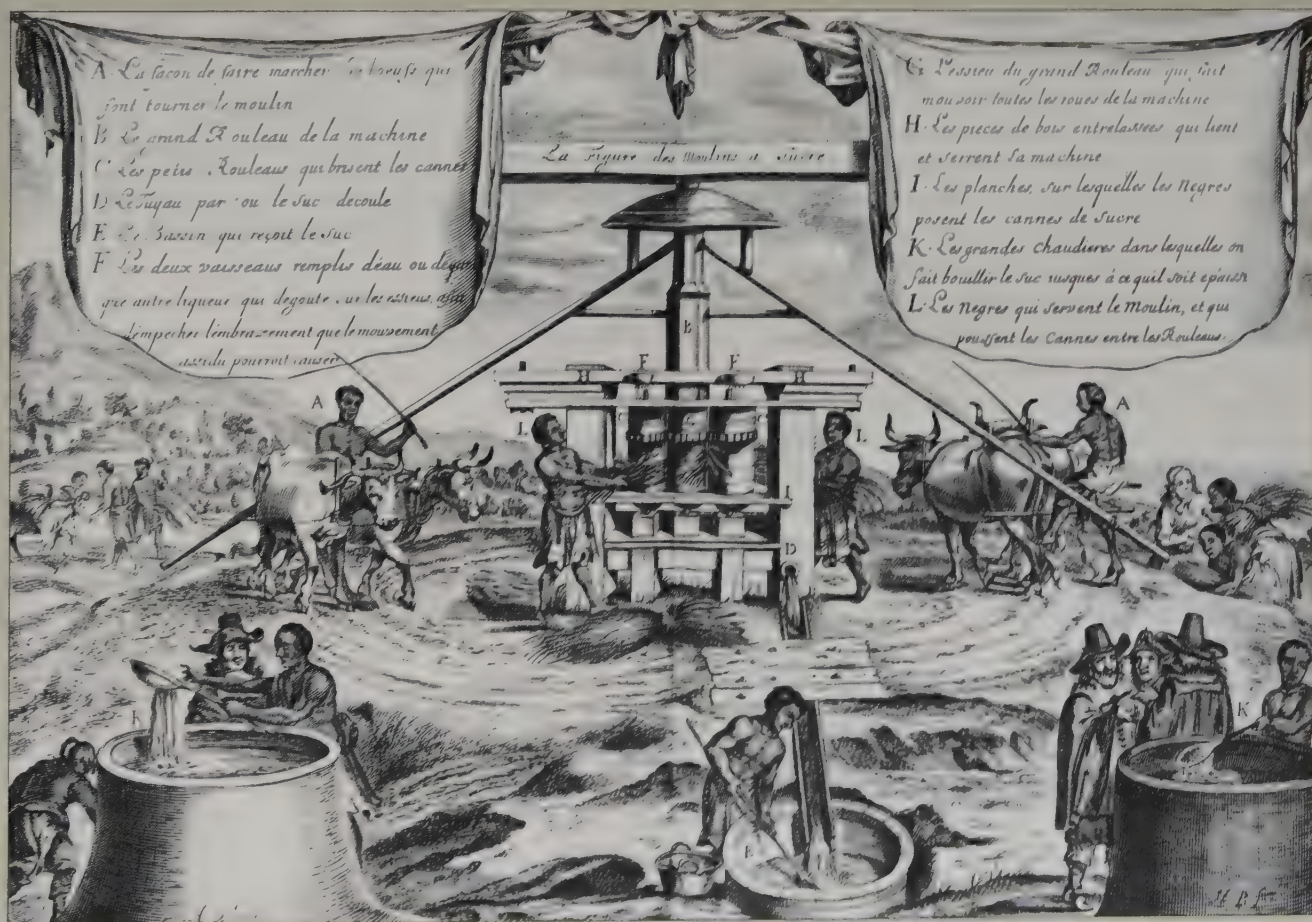 A. La façon de faire marcher les bœufs qui
font tourner le moulin
B Le grand Rouleau de la machine
C Les petis Rouleaus qui brisent les cannes
D Le Tuyau par ou le suc decoule
E Le Bassin qui reçoit le suc
F Les deux vaisseaus remplis d'eau ou de
que autre liqueur qui degoute sur les essieus, afin
d'empecher l'embrazement que le mouvement
assidu pourroit causer
La Figure des Moulins a Sucre
G. L'essieu du grand Rouleau qui fait
mouvoir toutes les roues de la machine
H. Les pieces de bois entrelassées qui lient
et serrent sa machine
I. Les planches, sur lesquelles les Negres
posent les cannes de sucre
K. Les grandes chaudieres dans lesquelles on
fait bouillir le suc iusques à ce quil soit epaissi
L. Les Negres qui servent le Moulin, et qui
poussent les Cannes entre les Rouleaus.
B
F F
H H
A A
L L
I
D
K K
E